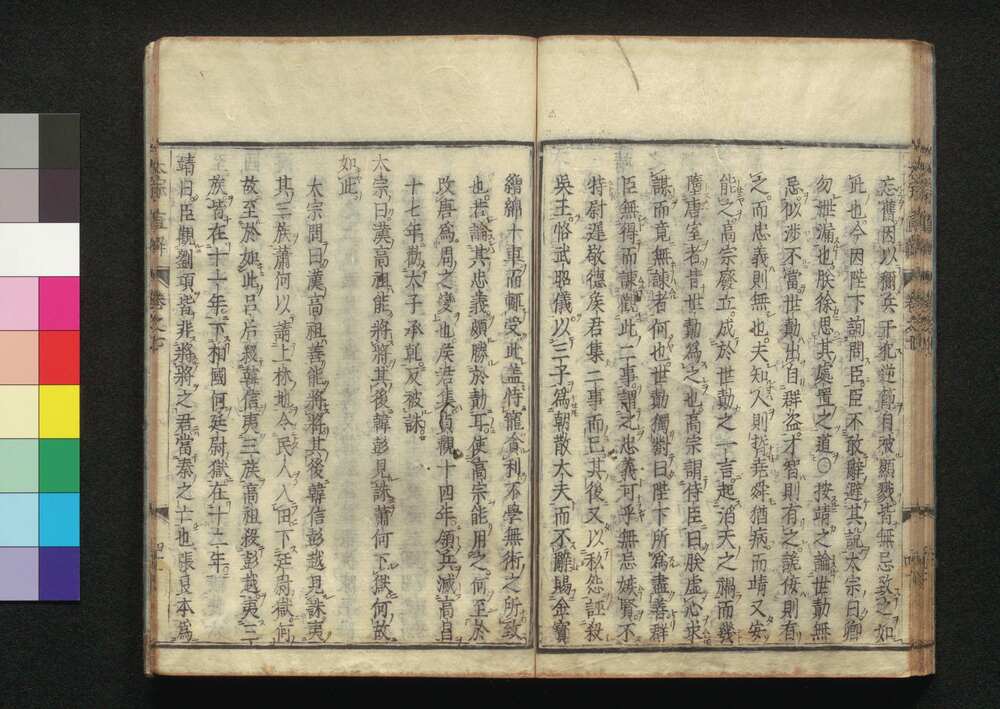 忘舊因以稱兵于犯逆節自被顯戮皆無忌致之如
此也今因陛下詢問臣臣不敢辭避其說太宗曰卿
勿泄漏也朕徐思其處置之道○按靖之論世勣無
忌似涉不當世勣出自群盗才智則有之謊佞則有
之而忠義則無也夫知人則哲堯舜猶病而靖又安
能之高宗廢立成於世勣之一言起滔天之禍而幾
隳唐室者昔世勣為之也高宗謂侍臣曰朕虚心求
諫而竟無諫者何也世勣獨對曰陛下所為盡善群
臣無得而諫觀此二事謂之忠義可乎無忌嫉賢不
特尉遲敬德矦君集二事而巳其後又以私怨誣殺
吳王恪武昭儀以三子為朝散大夫而不辭賜金寶
繒綿十車而輒受此盖恃寵貪利不學無術之所致
也若論其忠義頗勝於勣耳使高宗能用之何至於
改唐為周之變也矦君集貞觀十四年領兵滅高昌
十七年勸太子承乾反被誅
太宗曰漢高祖能將將其後韓彭見誅蕭何下獄何故
如此
太宗問曰漢高祖善能將將其後韓信彭越見誅夷
其三族蕭何以請上林地令民人入田下廷尉獄何
故至於如此吕后殺韓信夷三族高祖殺彭越夷三
族皆在十一年下相國何廷尉獄在十二年
靖曰臣觀劉項皆非將將之君當秦之亡也張良本為